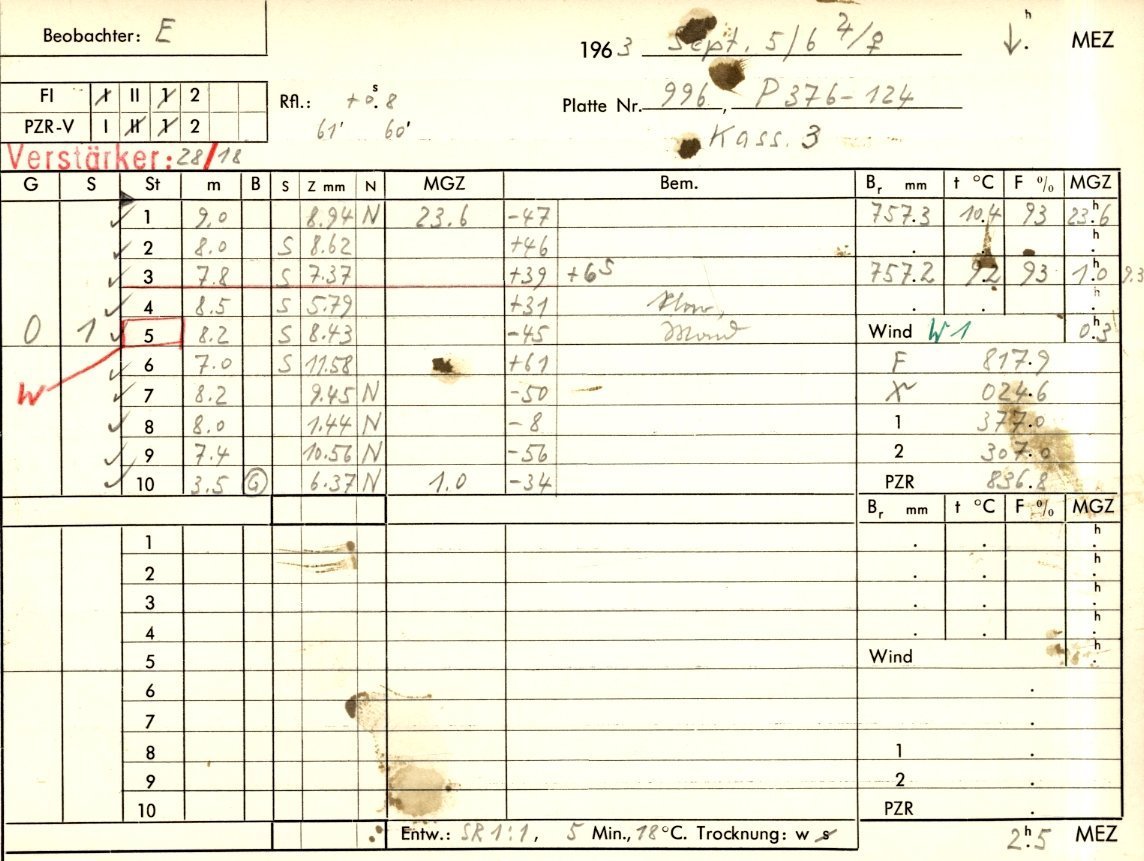 Beobachter: E
1963 Sept. 5/6 4/♀ ↓. h MEZ
FI I II 1 2 Rfl.: +0.s8
Platte Nr. 996, P 376-124
PZR-V I II 1 2 61' 60'
Kass. 3
Verstärker: 28/18
G S St m B S Z mm N MGZ Bem. Br mm t °C F % MGZ
1 9.0 8.94 N 23.6 -47 757.3 10.4 93 23.h6
2 8.0 S 8.62 +46 . . h.
3 7.8 S 7.37 +39 +6s 757.2 9.2 93 1.h0 9.3
4 8.5 S 5.79 +31 . . h.
0 1 5 8.2 S 8.43 -45 Mond Wind W1 0.h3
6 7.0 S 11.58 +61 F 817.9
W 7 8.2 9.45 N -50 024.6
8 8.0 1.44 N -8 1 377.0
9 7.4 10.56 N -56 2 307.0
10 3.5 G 6.37 N 1.0 -34 PZR 836.8
Br mm t °C F % MGZ
1 . . h.
2 . . h.
3 . . h.
4 . . h.
5 Wind h.
6 .
7 .
8 1 .
9 2 .
10 PZR .
Entw.: SR 1:1, 5 Min., 18°C. Trocknung: w s 2.h5 MEZ